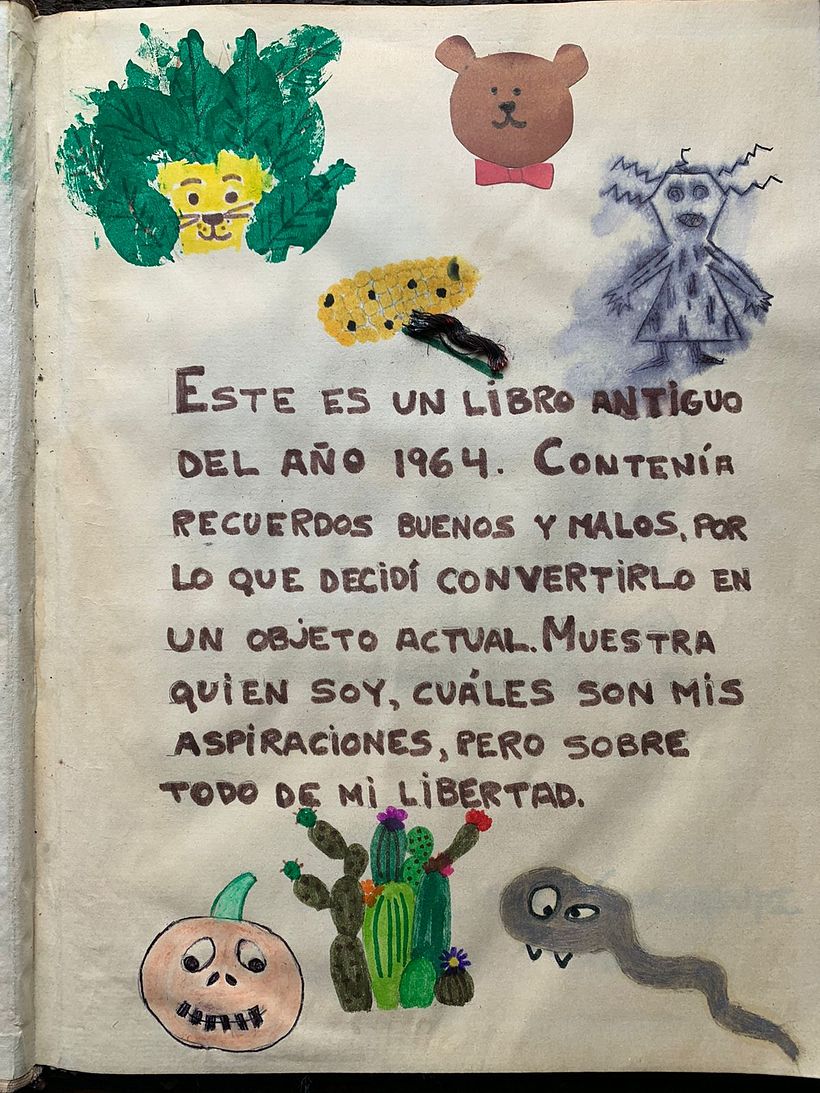 ESTE ES UN LIBRO ANTIGUO
DEL AÑO 1964. CONTENÍA
RECUERDOS BUENOS Y MALOS, POR
LO QUE DECIDÍ CONVERTIRLO EN
UN OBJETO ACTUAL. MUESTRA
QUIEN SOY, CUÁLES SON MIS
ASPIRACIONES, PERO SOBRE
TODO DE MI LIBERTAD.